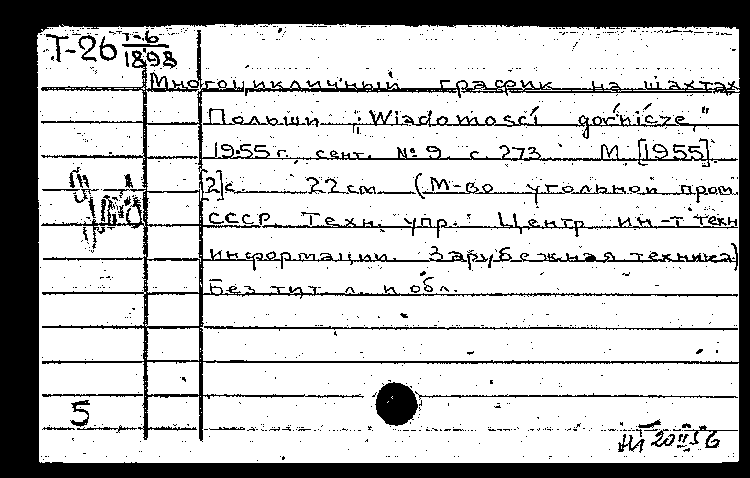 Т-26 Т-6/1898
Многоцикличный график на шахтах
Польши „Wiadomości górnicze,"
1955 г., сент. № 9 с. 273 М. [1955].
[2]с. 22 см. (М-во угольной пром.
СССР. Техн. упр. Центр ин-т техн
информации. Зарубежная техника)
Без тит. л. и обл.
5
20 II 56